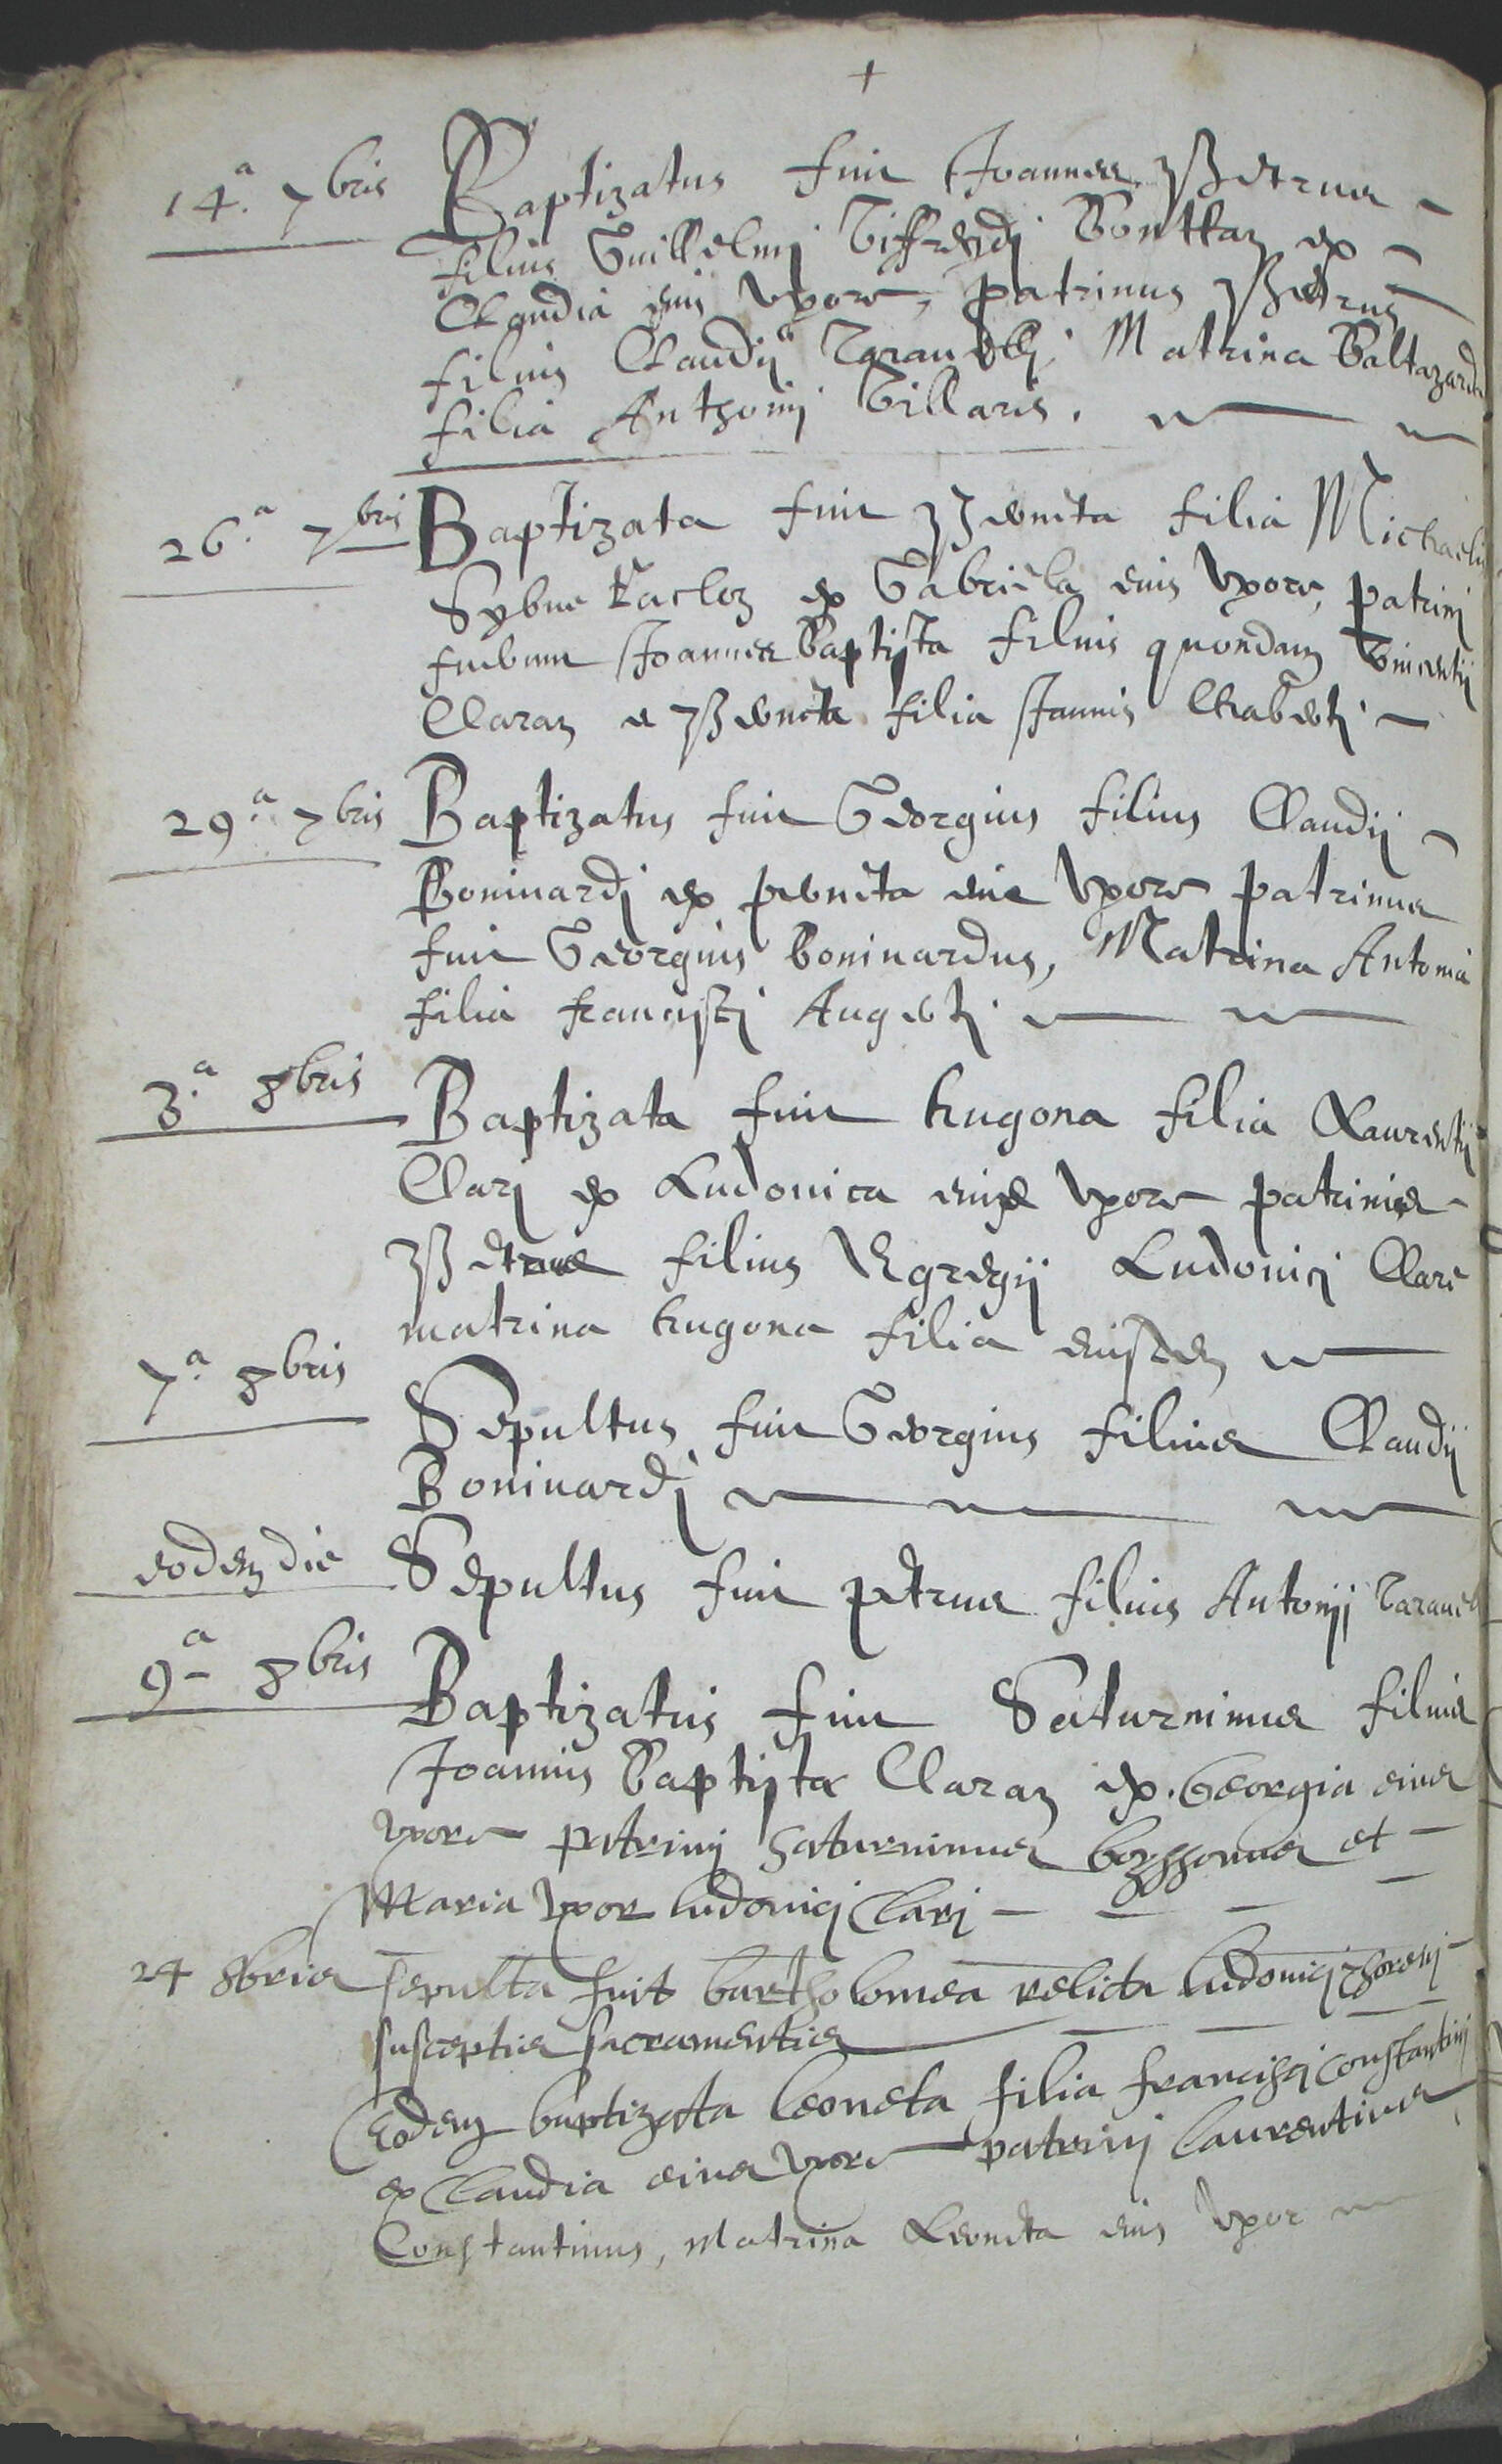 +
14.a 7bris Baptizatus fuit Joannes Petrus
filius Guillelmi Viffredi Bonttaz ex
Claudia eius uxore, patrinus Petrus
filius Claudij Taravelli, Matrina Baltazarda
filia Anthonij Villaris.
26.a 7bris Baptizata fuit Peroneta filia Michaelis
ex Gabriela eius uxore, patrini
fuerunt Joannes Baptista filius quondam Vincentij
Claraz et Peroneta filia Joannis Chaberti
29.a 7bris Baptizatus fuit Georgius filius Claudij
Boniuardj ex peroneta eius uxore patrinus
fuit Georgius boniuardus, Matrina Antonia
filia francisci
3.a 8bris Baptizata fuit hugona filia Laurentij
Clarj ex Ludouica eius uxore patrinus
Petrus filius Egregij Ludouici Clari
matrina hugona filia eiusdem
7.a 8bris Sepultus fuit Georgius filius Claudij
Boniuardj
eodem die Sepultus fuit petrus filius Antonij
9a 8bris Baptizatus fuit Saturninus filius
Joannis Baptista Claraz ex Georgia eius
uxore patrinj Saturninus et
Maria uxor ludouicj Clarj
24 8bris sepulta fuit bartholomea relicta ludouicj
susceptis sacramentis
Eodem baptizata leoneta filia francisci constantini
ex Claudia eius uxore patrinj laurentius
Constantinus, matrina Leoneta eius uxor